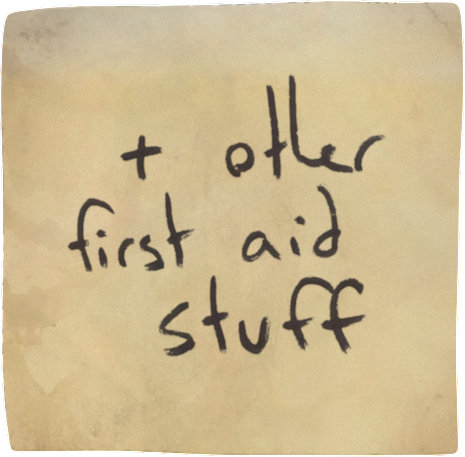 + other
first aid
stuff